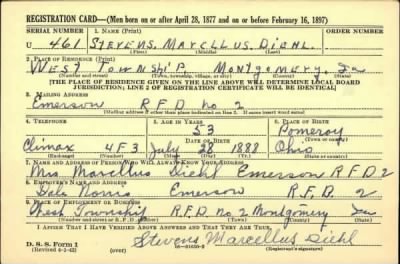 REGISTRATION CARD—(Men born on or after April 28, 1877 and on or before February 16, 1897)
SERIAL NUMBER 1. NAME (Print) ORDER NUMBER
U 461 STEVENS. MARCELLUS. DIEHL.
(First) (Middle) (Last)
2. PLACE OF RESIDENCE (Print)
WEST TOWNSHIP. MONTGOMERY. Ia
(Number and street) (Town, township, village, or city) (County) (State)
[THE PLACE OF RESIDENCE GIVEN ON THE LINE ABOVE WILL DETERMINE LOCAL BOARD
JURISDICTION; LINE 2 OF REGISTRATION CERTIFICATE WILL BE IDENTICAL]
3. MAILING ADDRESS
Emerson R F D no 2
(Mailing address if other than place indicated on line 2. If same insert word same)
4. TELEPHONE 5. AGE IN YEARS 6. PLACE OF BIRTH
53 Pomeroy
DATE OF BIRTH (Town or county)
Climax 4F3 July 28 1888 Ohio
(Exchange) (Number) (Mo.) (Day) (Yr.) (State or country)
7. NAME AND ADDRESS OF PERSON WHO WILL ALWAYS KNOW YOUR ADDRESS
Mrs Marcellus Diehl Emerson R F D 2
8. EMPLOYER'S NAME AND ADDRESS
Dale Norris Emerson R.F.D. 2
9. PLACE OF EMPLOYMENT OR BUSINESS
West Township R.F.D. no 2 Montgomery Ia
(Number and street or R. F. D. number) (Town) (County) (State)
I AFFIRM THAT I HAVE VERIFIED ABOVE ANSWERS AND THAT THEY ARE TRUE.
D. S. S. Form 1
(Revised 4-1-42) (over)
Stevens Marcellus Diehl
(Registrant's signature)